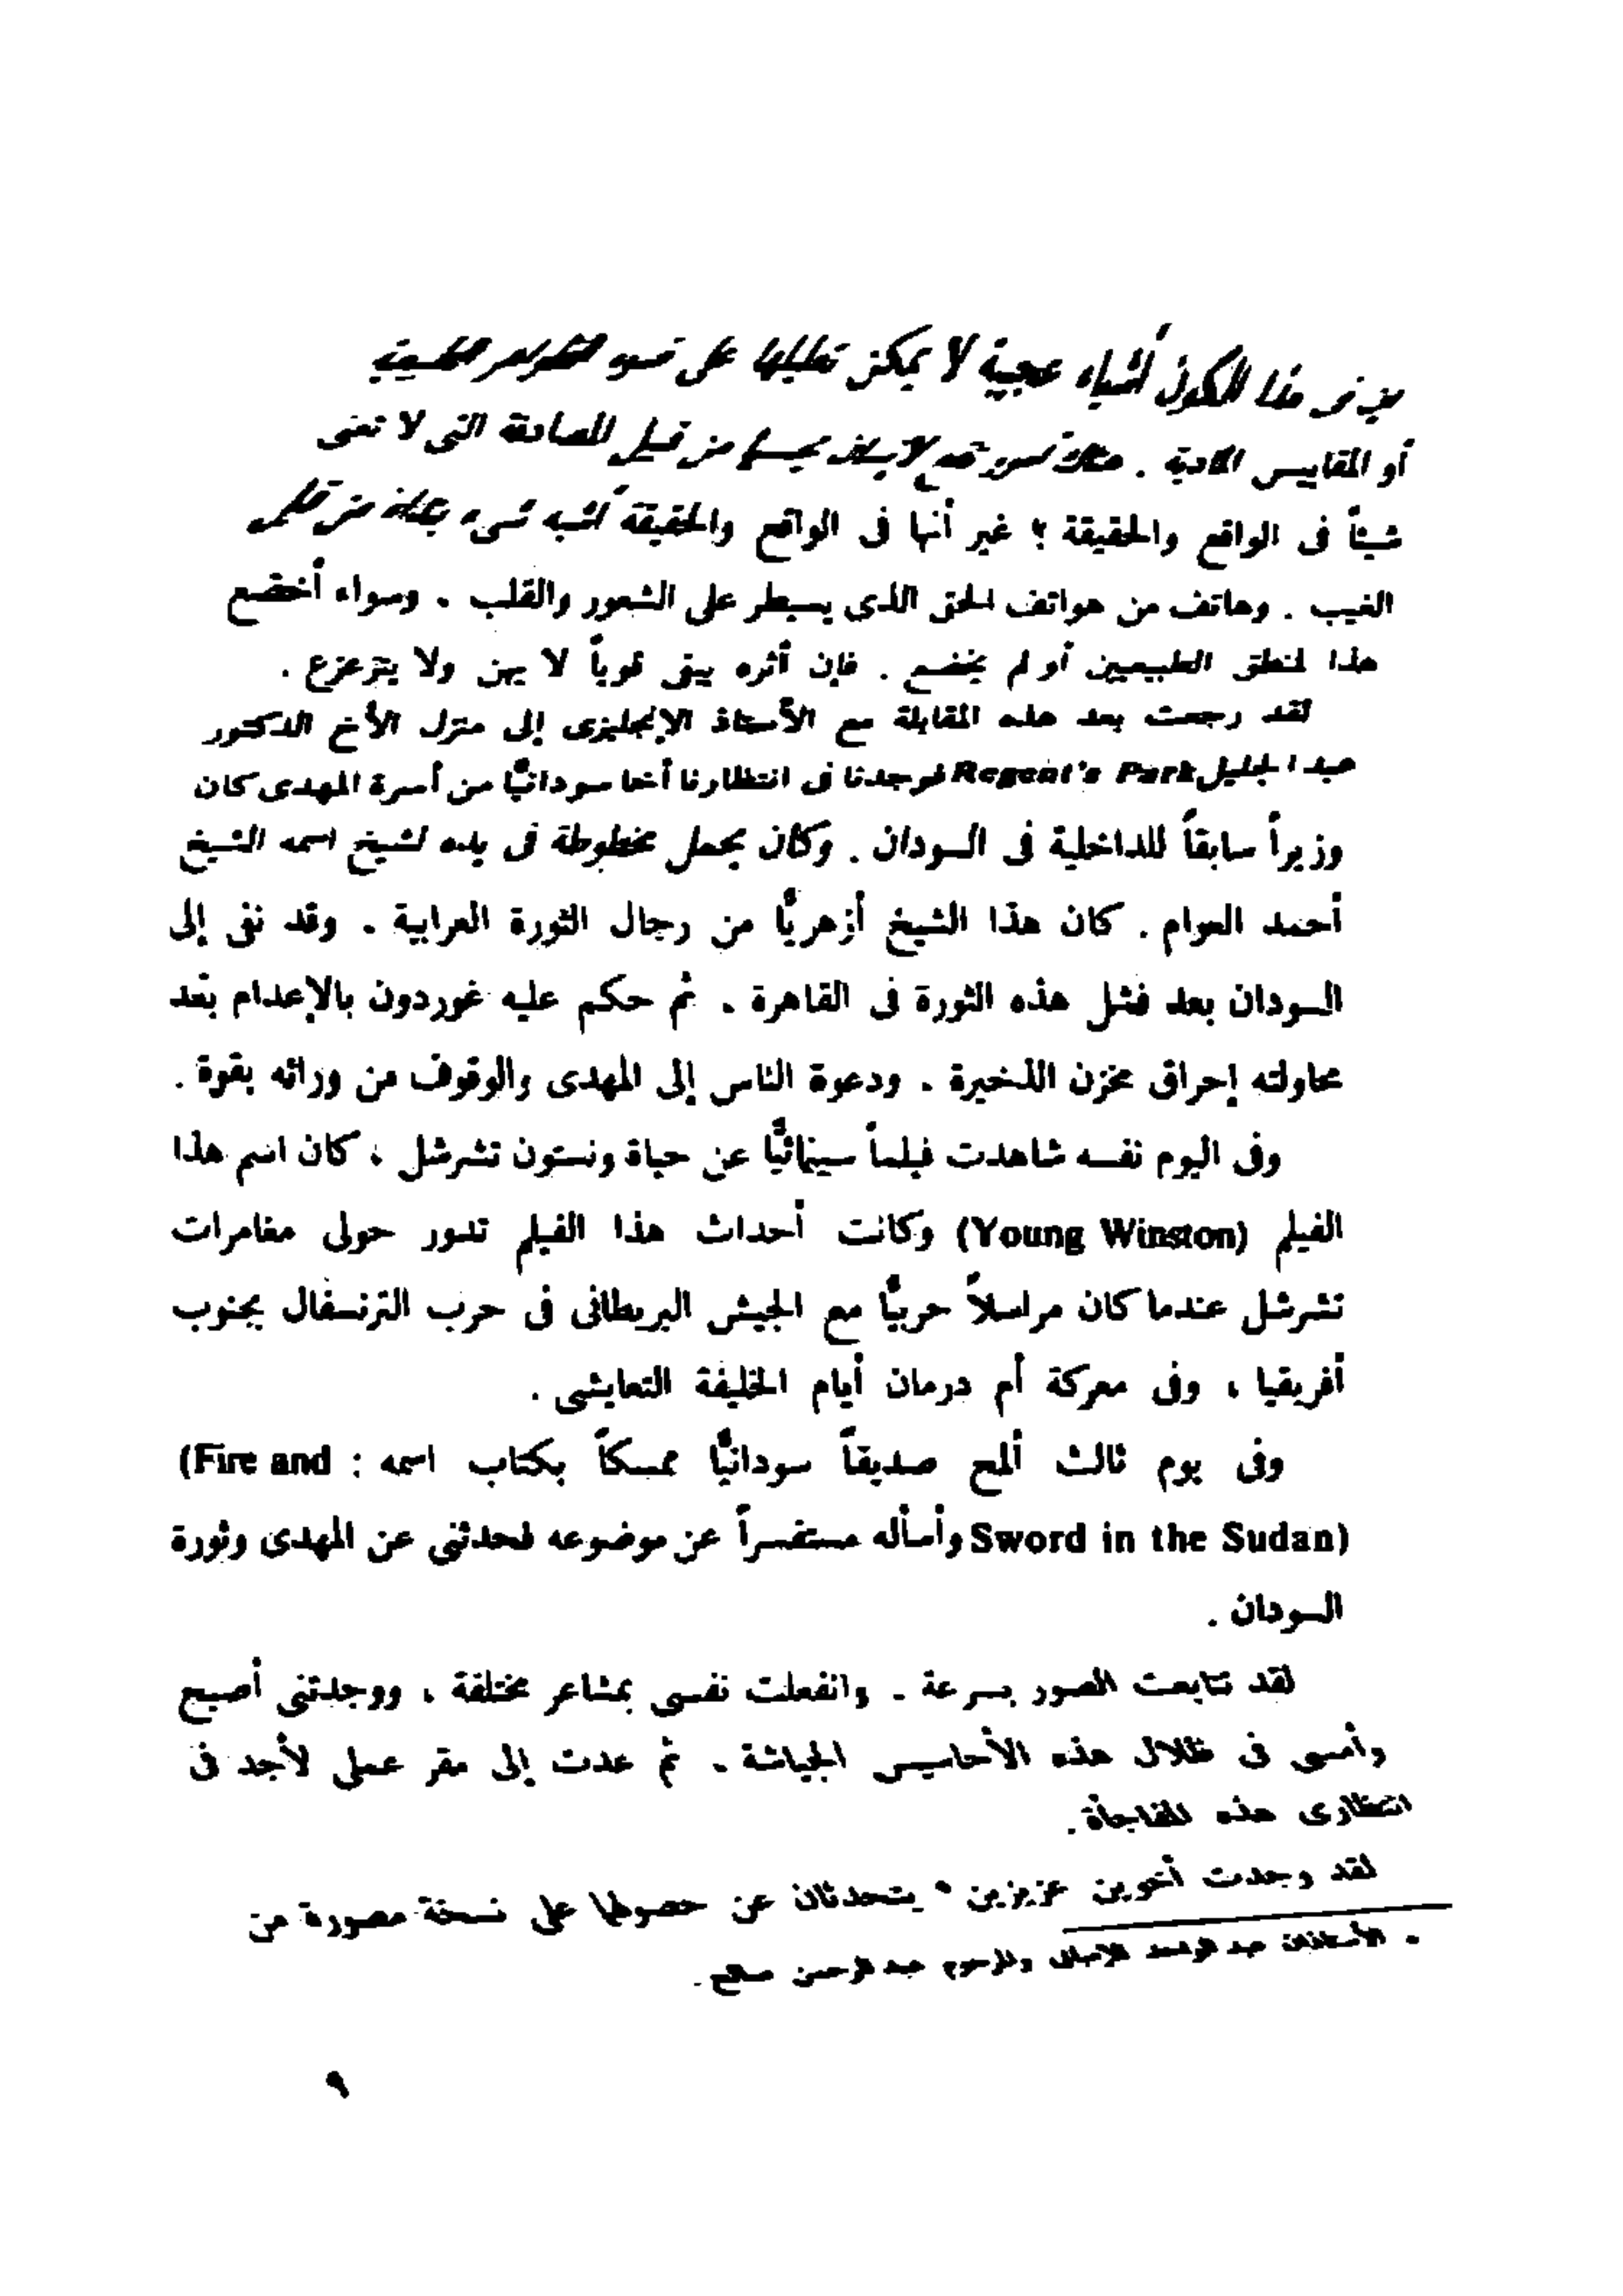 إن فى هذا الكون أشياء عجيبة لا يمكن تعليلها على ضوء الطبيعية
أو المقاييس المادية . هناك أمور تقع من قبيل المصادفة التى لا تعنى
شيئاً فى الواقع والحقيقة ؛ غير أنها فى الواقع والحقيقة أشبه شىء
الغيب . وهاتف من هواتف الحق الذى يسيطر على الشعور والقلب . وسواء أخضع
هذا لمنطق الطبيعيين أو لم يخضع . فإن أثره يبقى قوياً لا يهن ولا يتزعزع .
لقد رجعت بعد هذه المقابلة مع الأستاذ الإنجليزى إلى منزل الأخ الدكتور
عبد الجليل Regent's Park فوجدنا فى انتظارنا أخا سودانيًّا من أسرة المهدى كان
وزيراً سابقاً للداخلية فى السودان . وكان يحمل مخطوطة فى يده لشيخ اسمه الشيخ
أحمد العوام . كان هذا الشيخ أزهريًّا من رجال الثورة العرابية . وقد نفى إلى
السودان بعد فشل هذه الثورة فى القاهرة . ثم حكم عليه غوردون بالإعدام بعد
محاولته إحراق مخزن الذخيرة . ودعوة الناس إلى المهدى والوقوف من ورائه بقوة .
وفى اليوم نفسه شاهدت فيلماً سينمائيًّا عن حياة ونستون تشرشل ، كان اسم هذا
الفيلم (Young Winston) وكانت أحداث هذا الفيلم تدور حول مغامرات
تشرشل عندما كان مراسلاً حربيًّا مع الجيش البريطانى فى حرب الترنسفال بجنوب
أفريقيا ، وفى معركة أم درمان أيام الخليفة التعايشى .
وفى يوم ثالث ألمح صديقاً سودانيًّا ممسكاً بكتاب اسمه : (Fire and
Sword in the Sudan) وأسأله مستفسراً عن موضوعه فحدثنى عن المهدى وثورة
السودان .
لقد تتابعت الصور بسرعة . وانفعلت نفسى بمشاعر مختلفة ، ووجدتنى أصبح
وأمسى فى ظلال هذه الأحاسيس الجياشة . ثم عدت إلى مقر عملى لأجد فى
انتظارى هذه المفاجأة .
لقد وجدت أخوين عزيزين * يتحدثان عن حصولها على نسخة مصورة من
* الأستاذان عبد والمرحوم عبد الرحمن صالح .
٩